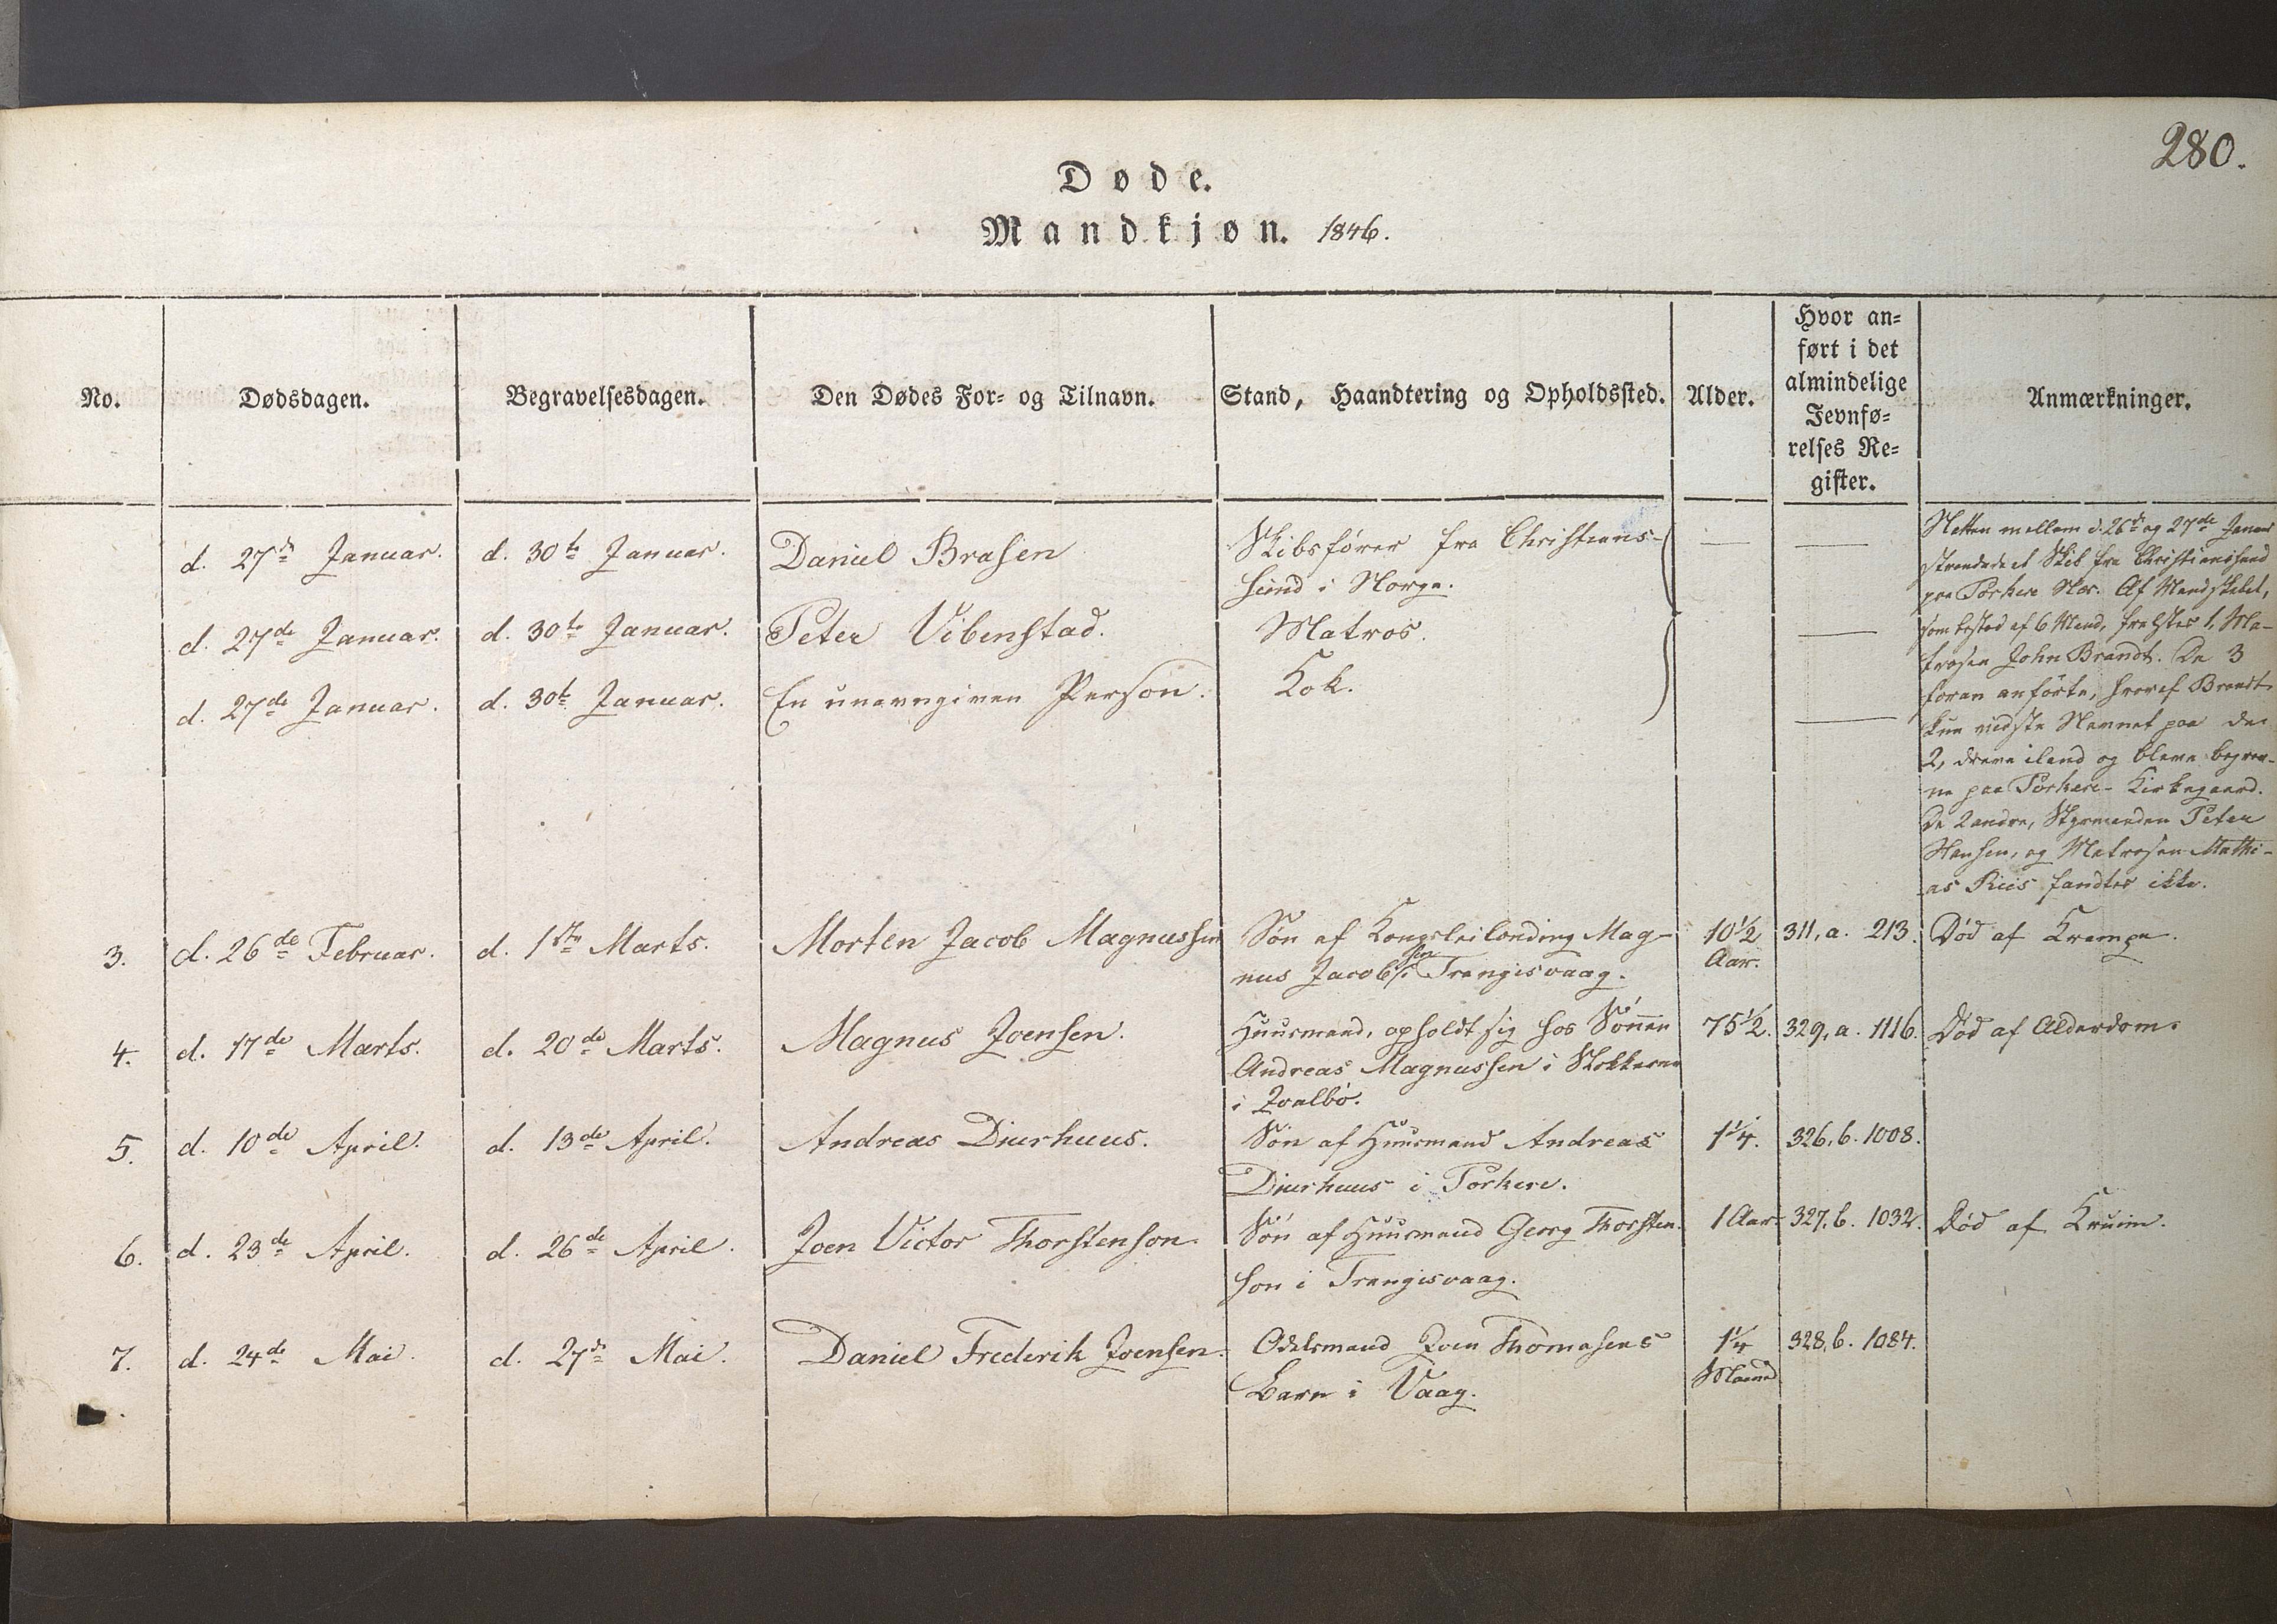 280.
Døde.
Mandkjøn. 1846.
No. Dødsdagen. Begravelsesdagen. Den Dødes For- og Tilnavn. Stand, Haandtering og Opholdssted. Alder. Hvor an=
ført i det
almindelige
Jevnfø=
relses Re=
gister. Anmærkninger.
d. 27de Januar. d. 30te Januar. Daniel Brasen Skibsfører fra Christians-
sund i Norge. — —
d. 27de Januar. d. 30te Januar. Peter Vibenstad. Matros. —
d. 27de Januar. d. 30te Januar. En unavngiven Person. Kok. —
Natten mellem d. 26de og 27de Januar
strandede et Skib fra Christianssund
paa Porkere Nes. Af Mandskabet,
som bestod af 6 Mand, frelstes 1, Ma-
trosen John Brandt. De 3
foran anførte, hvoraf Brandt
kun vidste Navnet paa de
2, dreve iland og bleve begrav-
ne paa Porkere Kirkegaard.
De 2 andre, Styrmanden Peter
Hansen, og Matrosen Mathi-
as Riis fandtes ikke.
3. d. 26de Februar. d. 1ste Marts. Morten Jacob Magnussen Søn af Kongsleilænding Mag-
nus Jacobsen i Trangisvaag. 10½
Aar. 311, a. 213. Død af Krampe.
4. d. 17de Marts. d. 20de Marts. Magnus Joensen. Huusmand, opholdt sig hos Sønnen
Andreas Magnussen i
i Qvalbø. 75½. 329, a. 1116. Død af Alderdom.
5. d. 10de April. d. 13de April. Andreas Diurhuus. Søn af Huusmand Andreas
Diurhuus i Porkere. 1¼. 326, b. 1008.
6. d. 23de April. d. 26de April. Joen Victor Thorstenson. Søn af Huusmand Georg Thorsten-
son i Trangisvaag. 1 Aar 327, b. 1032. Død af Kruim.
7. d. 24de Mai d. 27de Mai. Daniel Frederik Joensen. Odelsmand Joen Thomasens
Barn i Vaag. 1¼
Maaned 328, b. 1084.